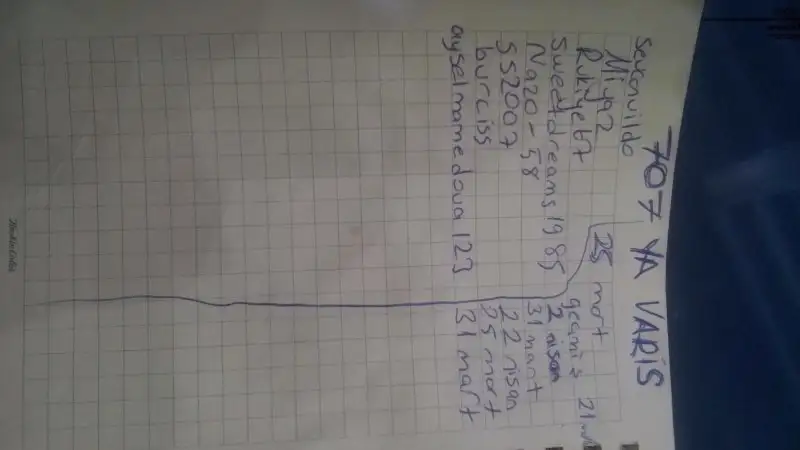 707 YA VARİS
Miya2 25 mart 21
Rukiye67
sweetdreams1985 2 nisan
Nazo-58 31 mart
SS2007 22 nisan
burciss 25 mart
ayselmamedova123 31 mart